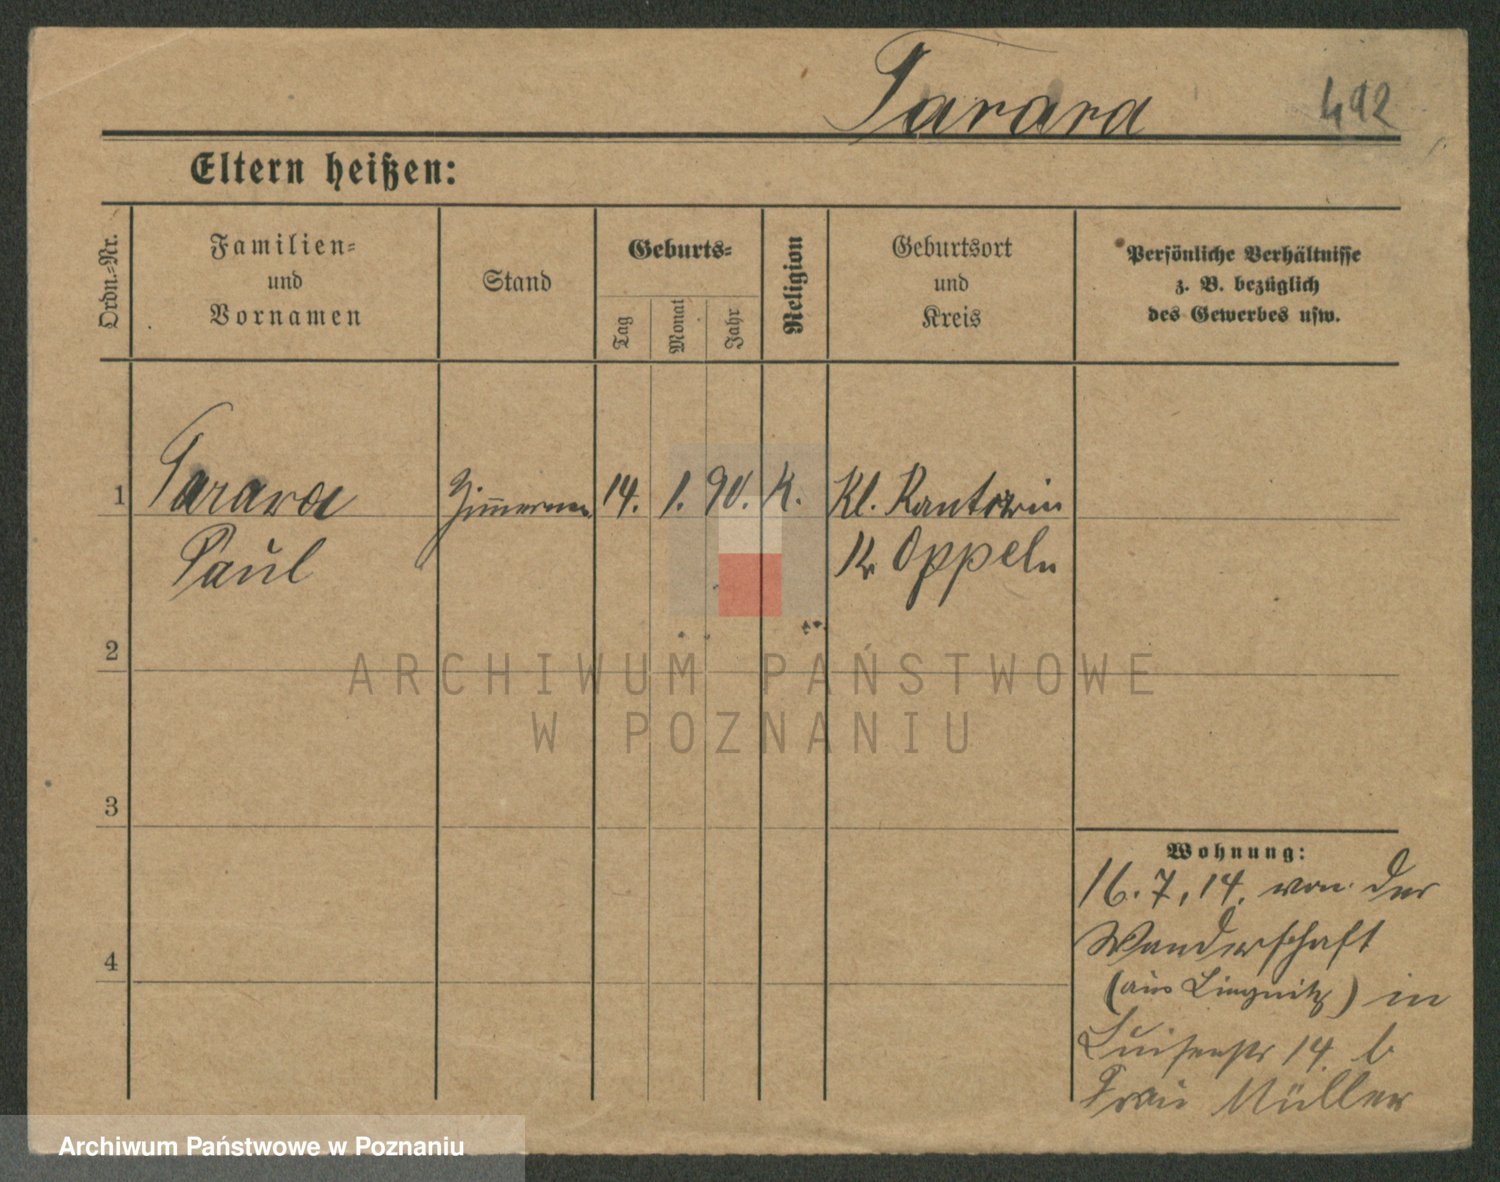 Tarara 492
Eltern heißen:
Ordn.=Nr.
Familien=
und
Vornamen
Stand
Geburts=
Tag
Monat
Jahr
Religion
Geburtsort
und
Kreis
Persönliche Verhältnisse
z. B. bezüglich
des Gewerbes usw.
1 Tarara 14. 1. 90. K. Kl.
Paul Kr Oppeln
2
3
4
Wohnung:
16. 7. 14. von der
Wanderschaft
(aus Liegnitz) in
Luisenstr 14 b
Frau Müller
ARCHIWUM PAŃSTWOWE
W POZNANIU
Archiwum Państwowe w Poznaniu